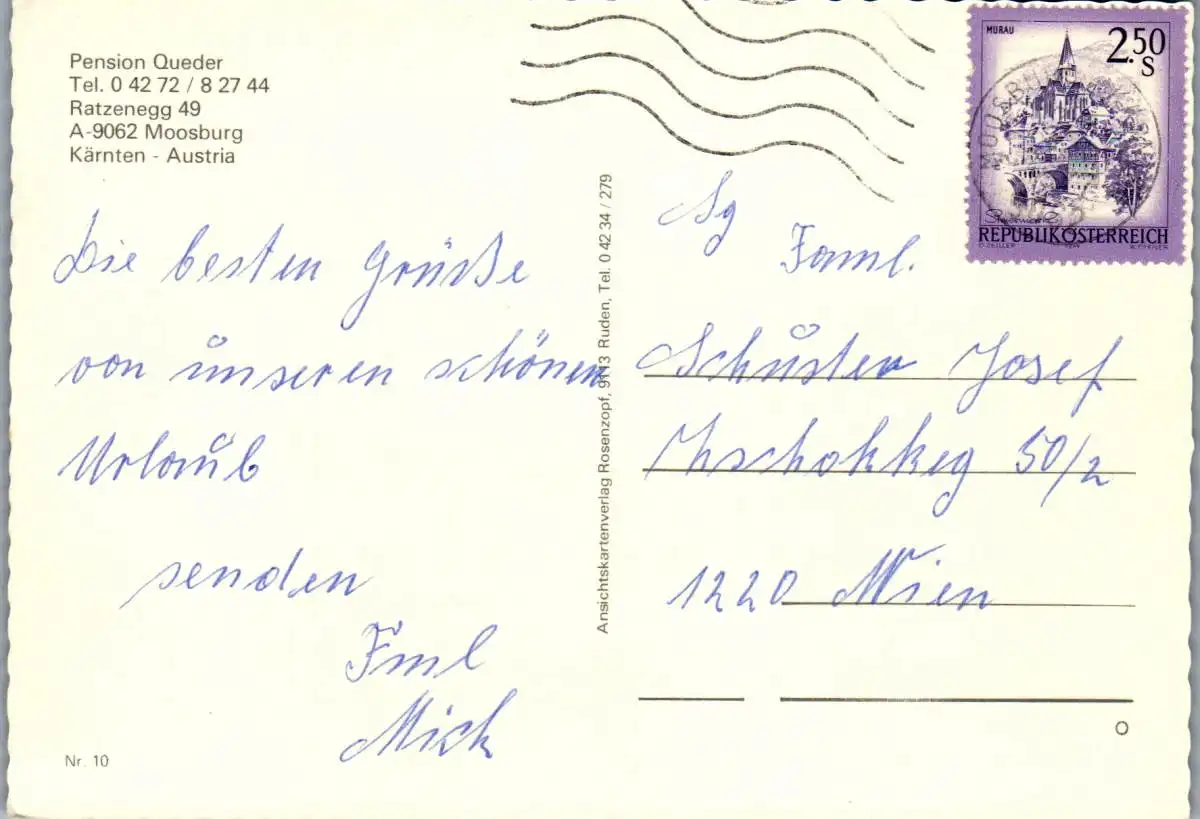 Pension Queder
Tel. 0 42 72 / 8 27 44
Ratzenegg 49
A-9062 Moosburg
Kärnten - Austria
Die besten Grüße
von unseren schönen
Urlaub
senden
Fml
Mick
Nr. 10
Ansichtskartenverlag Rosenzopf, 9113 Ruden, Tel. 0 42 34 / 279
MURAU
2.50
S
Steiermark
REPUBLIK ÖSTERREICH
MOOSBURG
Sg
Faml.
Schuster Josef
50/2
1220 Wien